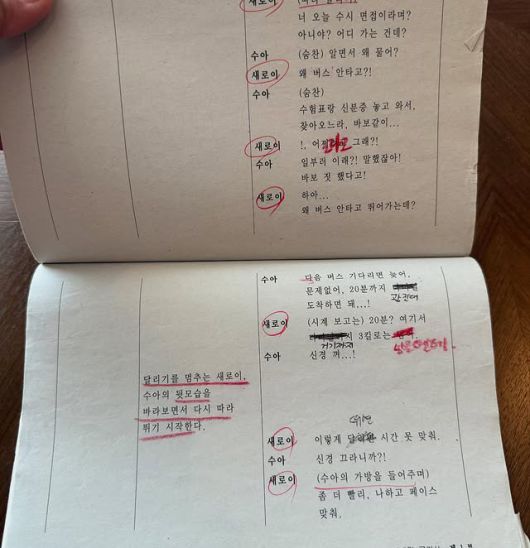 새로이
너 오늘 수시 면접이라며?
아니야? 어디 가는 건데?
수아 (숨찬) 알면서 왜 물어?
새로이 왜 버스 안타고?!
수아 (숨찬)
수험표랑 신분증 놓고 와서,
찾아오느라, 바보같이...
새로이 !, 어쩌라고 그래?!
수아 일부러 이래?! 말했잖아!
바보 짓 했다고!
새로이 하아...
왜 버스 안타고 뛰어가는데?
수아 다음 버스 기다리면 늦어,
문제없어, 20분까지
도착하면 돼...!
새로이 (시계 보고는) 20분? 여기서
시 3킬로는
거기까지
수아 신경 꺼...!
달리기를 멈추는 새로이,
수아의 뒷모습을
바라보면서 다시 따라
뛰기 시작한다.
새로이 이렇게 시간 못 맞춰.
수아 신경 끄라니까?!
새로이 (수아의 가방을 들어주며)
좀 더 빨리, 나하고 페이스
맞춰.